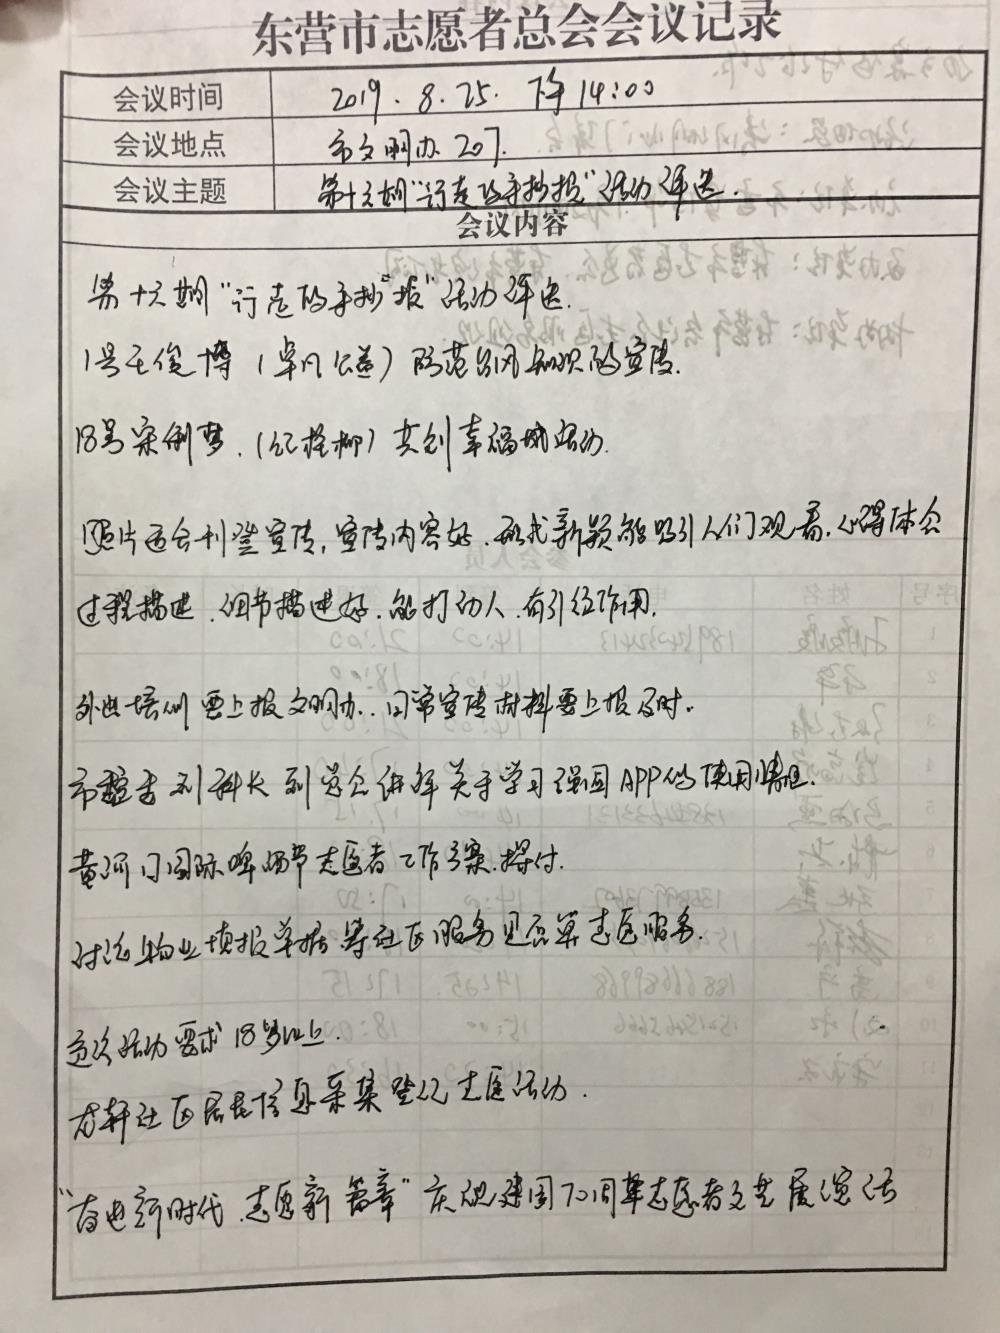 东营市志愿者总会会议记录
会议时间 2019.8.25. 下午14:00
会议地点 市文明办 207.
会议主题 第十六期“行走的手抄报”活动评选.
会议内容
第十六期“行走的手抄报”活动评选.
1号王俊博（卓凡公益）防范台风知识的宣传.
18号宋俐梦.（红柽柳）共创幸福城活动.
照片适合刊登宣传,宣传内容好.形式新颖能吸引人们观看.心得体会
过程描述.细节描述好.能打动人.有引领作用.
外出培训要上报文明办..日常宣传材料要上报及时.
市委刘科长到总会讲解关于学习强国APP的使用情况.
黄河口国际啤酒节志愿者工作方案.探讨.
讨论物业填报单据.等社区服务是否算志愿服务.
这次活动要求18岁以上.
龙轩社区居民信息采集登记志愿活动.
“奋进新时代.志愿新篇章”庆祝建国70周年志愿者文艺展演活